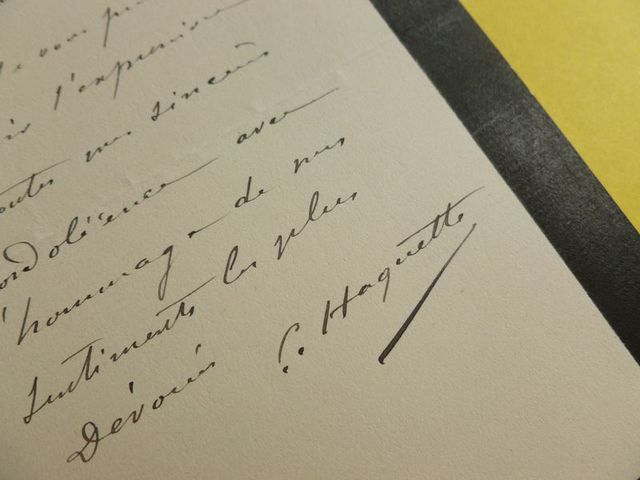 vous
l'expression
toutes mes sincères
condoléances avec
l'hommage de mes
sentiments les plus
Dévoués G. Haquette